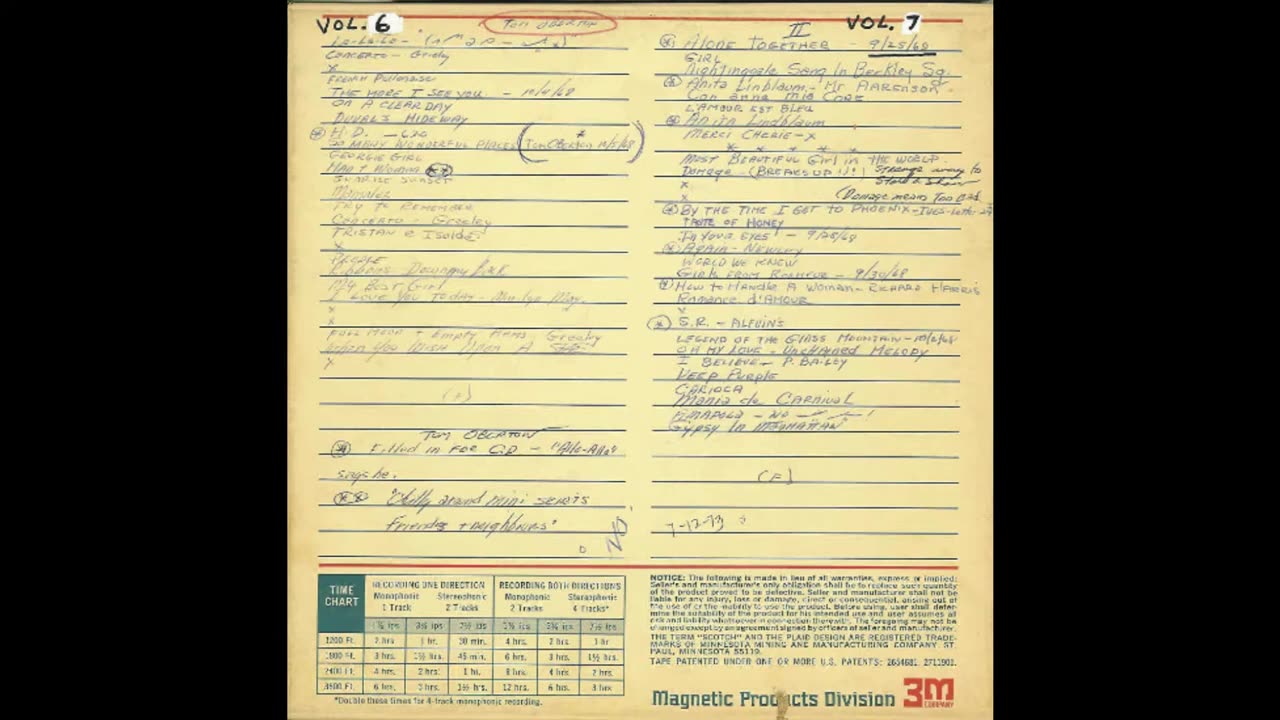 VOL. 6
TOM OBERTON
La-La-La
CONCERTO -
X
FRENCH
THE MORE I SEE YOU - 10/4/68
ON A CLEAR DAY
DUVAL'S HIDEWAY
H.D.
SO MANY WONDERFUL PLACES (TOM OBERTON 10/5/68)
GEORGIE GIRL
WOMAN
SUNRISE SUNSET
TRY TO REMEMBER
CONCERTO - Greeley
TRISTAN e Isolde
X
PEOPLE
Ribbons Down my Back
My Best Girl
I Love You Today - Marilyn May
X
X
FULL MOON + Empty Arms Greeley
When You Wish Upon A
X
(F)
TOM OBERTON
Filled in FOR C.D -
says he.
around mini skirts
Friends + neighbours"
NO
VOL. 7
II
ALONE TOGETHER - 9/25/68
GIRL
Nightingale Sang In Berkley Sq.
Anita Linblaum - MR AARENSON
Con
L'AMOUR EST BLEU
ANITA Lindblaum
MERCI CHERIE - X
X X X X X
MOST BEAUTIFUL GIRL in THE WORLD
Damage - (BREAKS UP !!!) Strange way to
Start a Show
X
X
(Damage means Too Bad
By THE TIME I GET TO PHOENIX - IVES - Letter
TASTE OF HONEY
In YOUR EYES - 9/25/68
AGAIN - NEWLEY
WORLD WE KNEW
GIRL FROM - 9/30/68
How to HANDLE A WOMAN - RICHARD HARRIS
ROMANCE d'AMOUR
X
S.R. -
LEGEND OF THE GLASS MOUNTAIN - 10/2/68
OH MY LOVE - UNCHAINED MELODY
I BELIEVE - P. BAILEY
DEEP PURPLE
CARIOCA
Mania de CARNIVAL
AMAPOLA - NO
GYPSY In MANHATTAN"
(F)
7-12-73
TIME CHART
RECORDING ONE DIRECTION RECORDING BOTH DIRECTIONS
Monophonic Stereophonic Monophonic Stereophonic
1 Track 2 Tracks 2 Tracks 4 Tracks*
1⅞ ips 3¾ ips 7½ ips 1⅞ ips 3¾ ips 7½ ips
1200 Ft. 2 hrs. 1 hr. 30 min. 4 hrs. 2 hrs. 1 hr.
1800 Ft. 3 hrs. 1½ hrs. 45 min. 6 hrs. 3 hrs. 1½ hrs.
2400 Ft. 4 hrs. 2 hrs. 1 hr. 8 hrs. 4 hrs. 2 hrs.
3600 Ft. 6 hrs. 3 hrs. 1½ hrs. 12 hrs. 6 hrs. 3 hrs.
*Double these times for 4-track monophonic recording.
NOTICE: The following is made in lieu of all warranties, express or implied:
Seller's and manufacturer's only obligation shall be to replace such quantity
of the product proved to be defective. Seller and manufacturer shall not be
liable for any injury, loss or damage, direct or consequential, arising out of
the use of or the inability to use the product. Before using, user shall deter-
mine the suitability of the product for his intended use and user assumes all
risk and liability whatsoever in connection therewith. The foregoing may not be
changed except by an agreement signed by officers of seller and manufacturer.
THE TERM "SCOTCH" AND THE PLAID DESIGN ARE REGISTERED TRADE-
MARKS OF MINNESOTA MINING AND MANUFACTURING COMPANY, ST.
PAUL, MINNESOTA 55119.
TAPE PATENTED UNDER ONE OR MORE U.S. PATENTS: 2654681, 2711901.
Magnetic Products Division 3M COMPANY